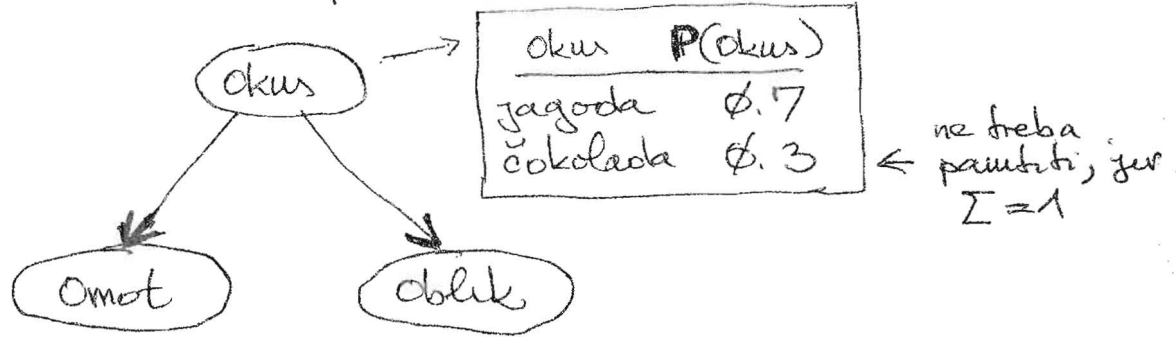 okus
okus P(okus)
jagoda 0.7
čokolada 0.3
ne treba
pamtiti, jer
Σ=1
Omot
Oblik